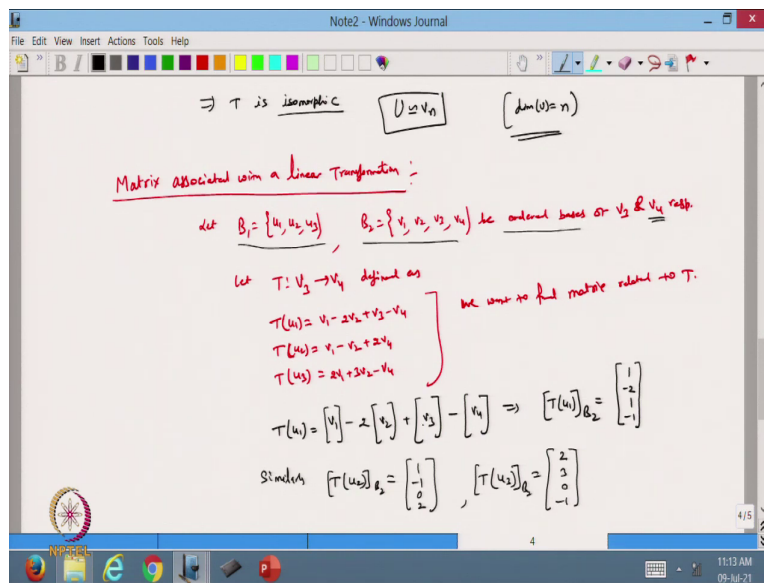 Note2 - Windows Journal
File Edit View Insert Actions Tools Help
B I
⇒ T is isomorphic U ≃ Vn [dim(U) = n]
Matrix associated with a linear Transformation :-
Let B₁ = {u₁, u₂, u₃}, B₂ = {v₁, v₂, v₃, v₄} be ordered bases of V₃ & V₄ resp.
Let T: V₃ → V₄ defined as
T(u₁) = v₁ - 2v₂ + v₃ - v₄
we want to find matrix related to T.
T(u₂) = v₁ - v₂ + 2v₄
T(u₃) = 2v₁ + 3v₂ - v₄
T(u₁) = [v₁] - 2[v₂] + [v₃] - [v₄] ⇒ [T(u₁)]B₂ = [1 -2 1 -1]
Similarly [T(u₂)]B₂ = [1 -1 0 2], [T(u₃)]B₂ = [2 3 0 -1]
4/5
NPTEL
4
11:13 AM
09-Jul-21